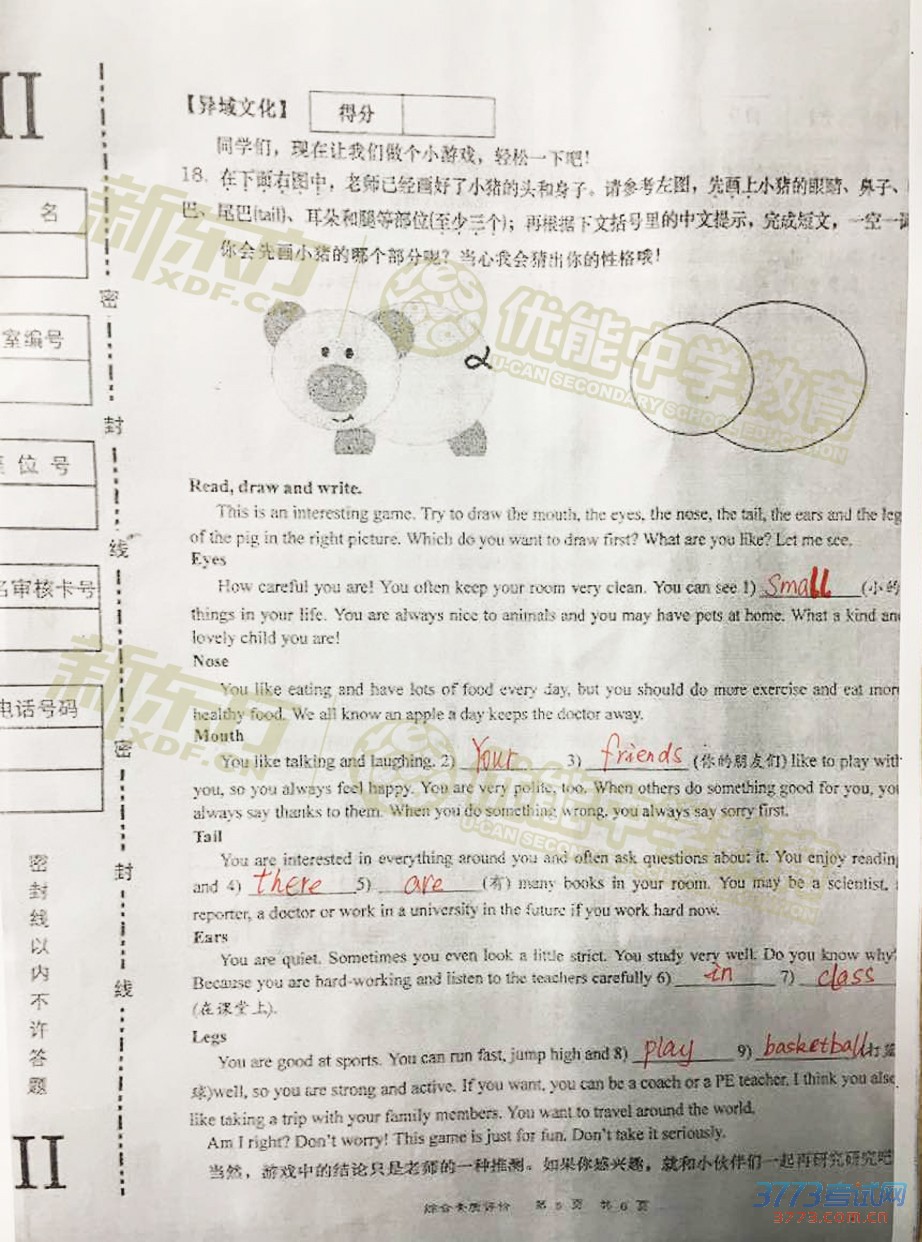 II
【异域文化】
得分
同学们，现在让我们做个小游戏，轻松一下吧！
18. 在下面右图中，老师已经画好了小猪的头和身子。请参考左图，先画上小猪的眼睛、鼻子、
巴、尾巴(tail)、耳朵和腿等部位(至少三个)；再根据下文括号里的中文提示，完成短文，一空一词
你会先画小猪的哪个部分呢？当心我会猜出你的性格哦！
Read, draw and write.
This is an interesting game. Try to draw the mouth, the eyes, the nose, the tail, the ears and the leg
of the pig in the right picture. Which do you want to draw first? What are you like? Let me see.
Eyes
How careful you are! You often keep your room very clean. You can see 1) small (小的
things in your life. You are always nice to animals and you may have pets at home. What a kind and
lovely child you are!
Nose
You like eating and have lots of food every day, but you should do more exercise and eat more
healthy food. We all know an apple a day keeps the doctor away.
Mouth
You like talking and laughing. 2) Your 3) friends (你的朋友们) like to play with
you, so you always feel happy. You are very polite, too. When others do something good for you, you
always say thanks to them. When you do something wrong, you always say sorry first.
Tail
You are interested in everything around you and often ask questions about it. You enjoy reading
and 4) there 5) are (有) many books in your room. You may be a scientist,
reporter, a doctor or work in a university in the future if you work hard now.
Ears
You are quiet. Sometimes you even look a little strict. You study very well. Do you know why?
Because you are hard-working and listen to the teachers carefully 6) in 7) class
(在课堂上).
Legs
You are good at sports. You can run fast, jump high and 8) play 9) basketball打篮
球)well, so you are strong and active. If you want, you can be a coach or a PE teacher. I think you also
like taking a trip with your family members. You want to travel around the world.
Am I right? Don't worry! This game is just for fun. Don't take it seriously.
当然，游戏中的结论只是老师的一种推测。如果你感兴趣，就和小伙伴们一起再研究研究吧
综合素质评价 第 5 页 共 6 页
名
室编号
位号
名审核卡号
电话号码
密
封
线
密
封
线
密封线以内不许答题
II
新东方
XDF.CN
优能中学教育
U-CAN SECONDARY SCHOOL EDUCATION
新东方
XDF.CN
优能中学教育
U-CAN SECONDARY SCHOOL EDUCATION
3773考试网
3773.com.cn